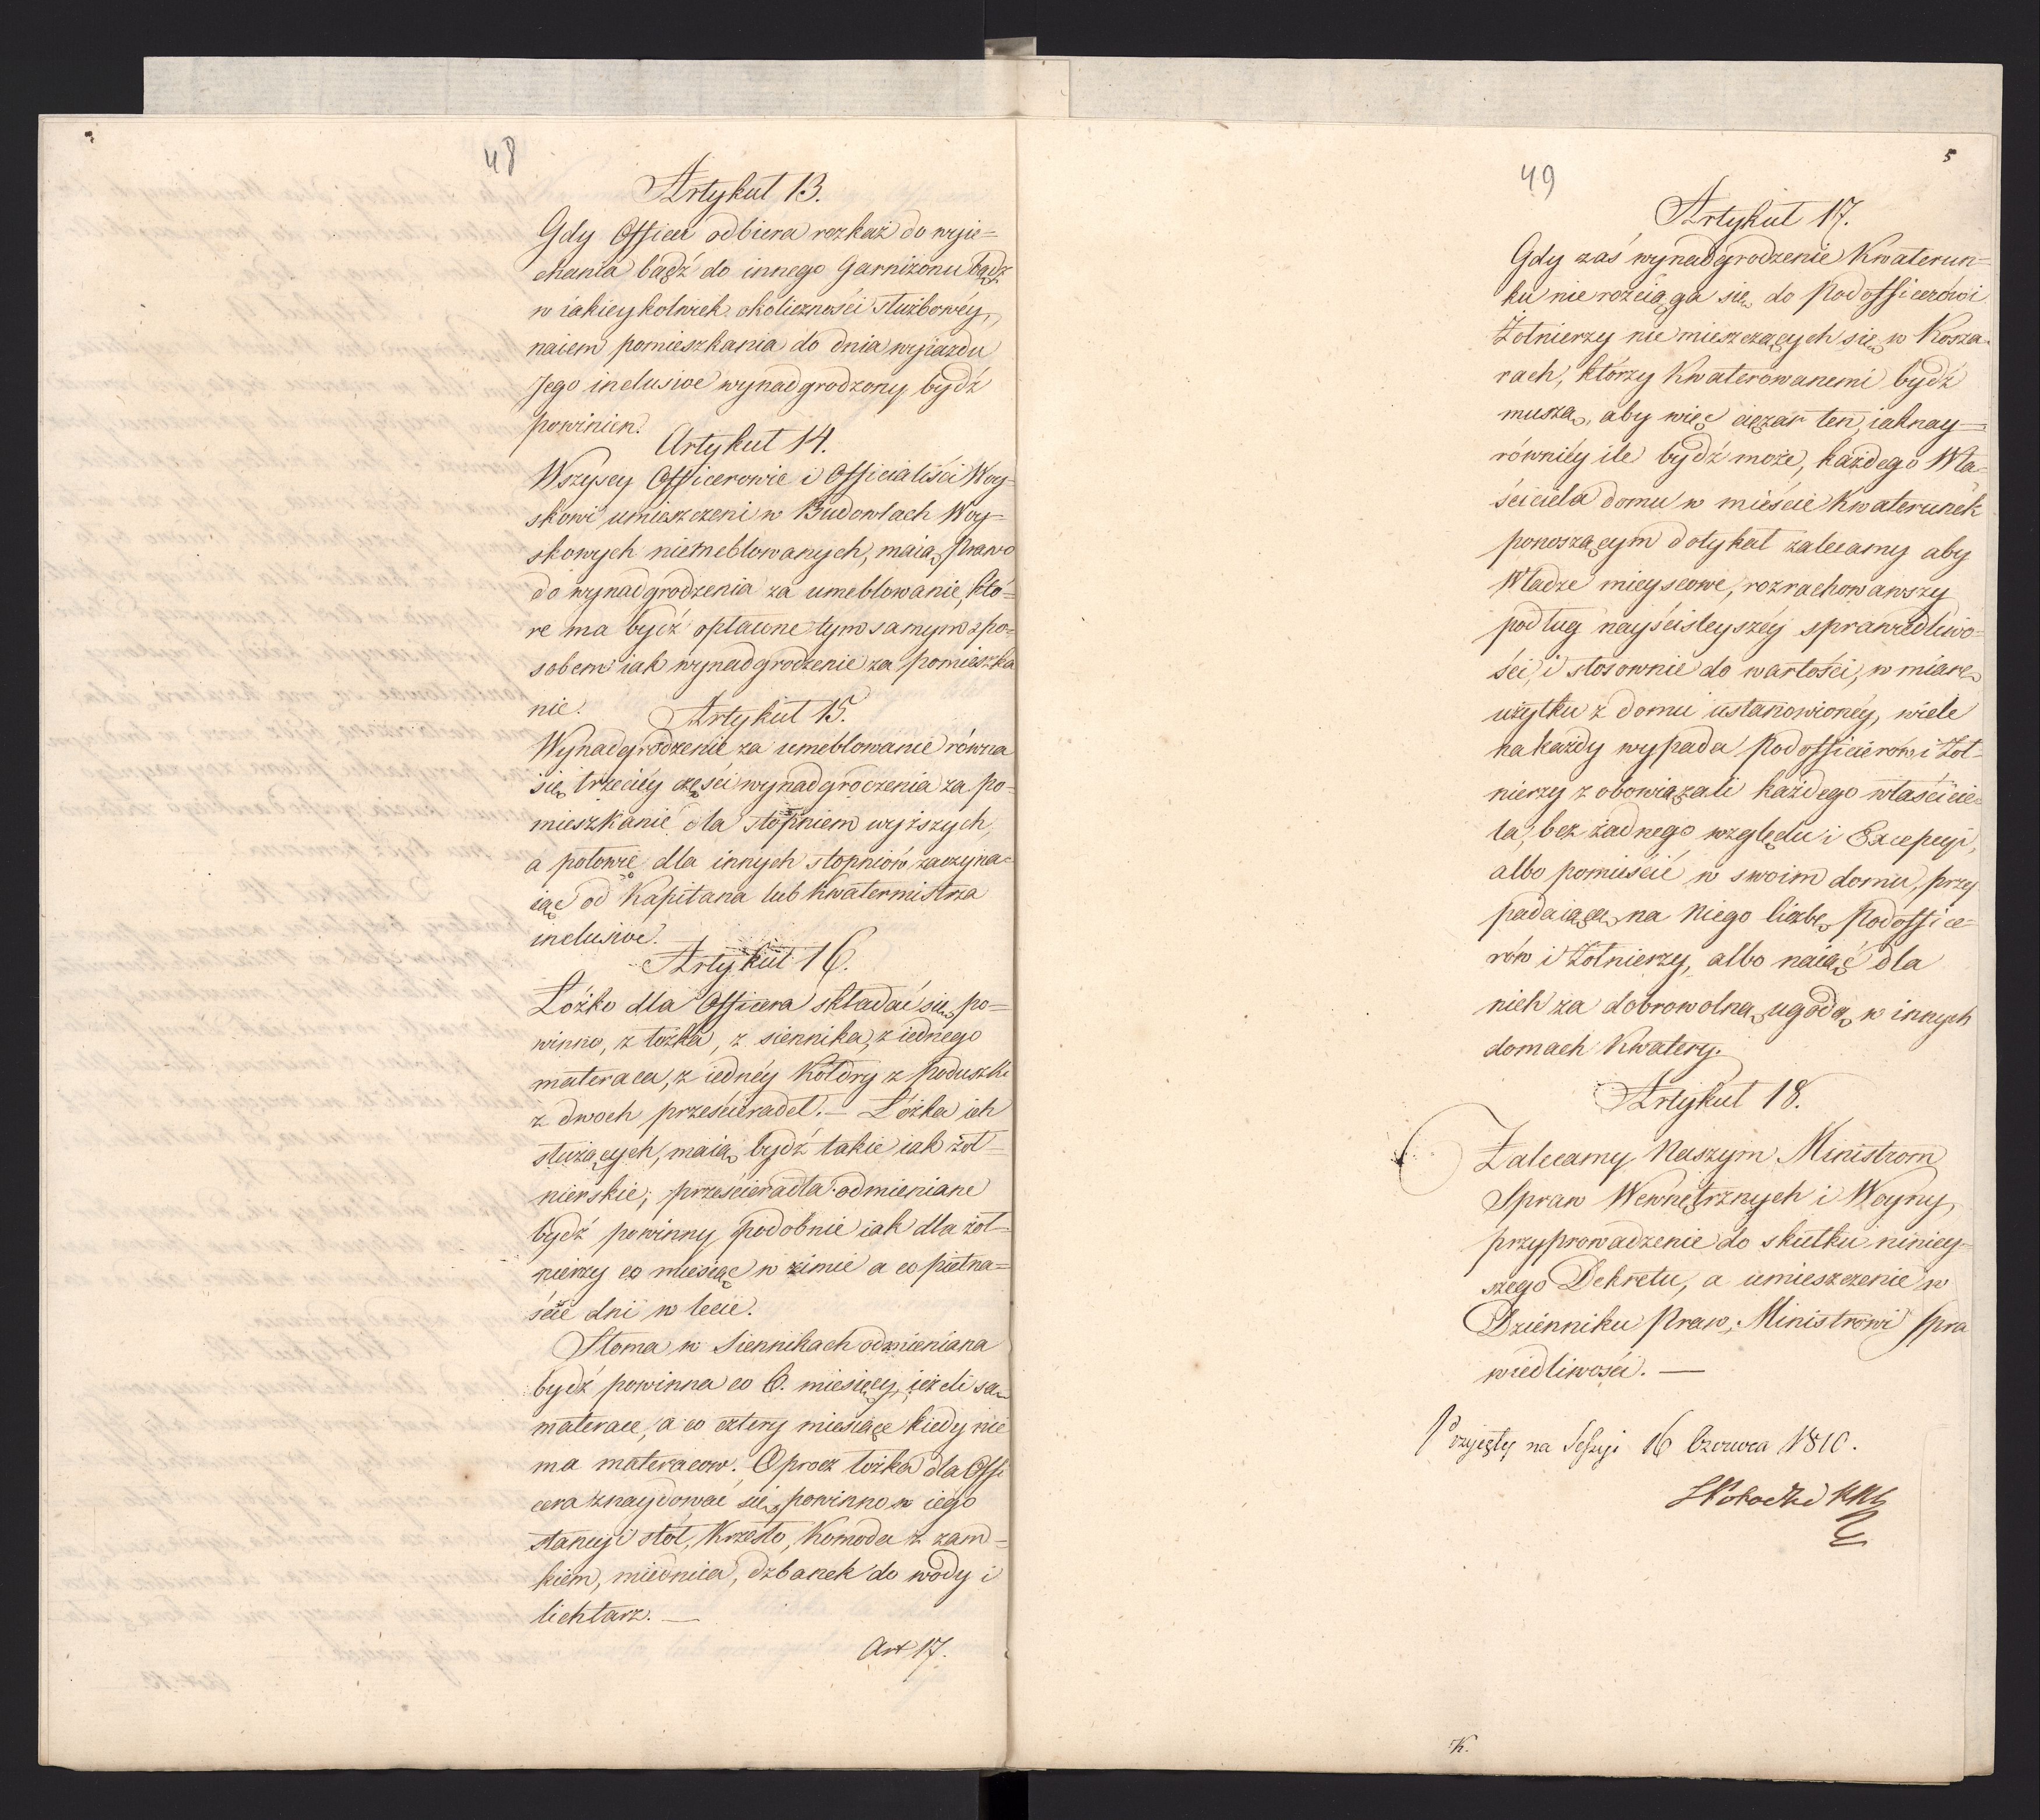 48
Artykuł 13.
Gdy Officer odbiera rozkaz do wyie=
chania bądź do innego Garnizonu bądz
w iakieykolwiek okoliczności służbowéy,
naiem pomieszkania do dnia wyiazdu
Jego inclusive wynadgrodzony bydź
powinien.
Artykuł 14.
Wszyscy Officerowie i Officialiści Woy=
skowi umieszczeni w Budowlach Woy=
skowych niemeblowanych, maią prawo
do wynadgrodzenia za umeblowanie, któ=
re ma bydź opłacone tym samym spo=
sobem iak wynadgrodzenie za pomieszka
nie.
Artykuł 15.
Wynadgrodzenie za umeblowanie równa
się trzeciéy części wynadgrodzenia za po=
mieszkanie dla stopniem wyższych,
a połowie dla innych stopniów zaczyna=
iąc od Kapitana lub Kwatermistrza
inclusive.
Artykuł 16.
Łóżko dla Officera składać się po=
winno, z łożka, z siennika, z iednego
materaca, z iednéy Kołdry z Poduszki
z dwoch prześcieradeł. — Łóżka ich
służących, maią bydź takie iak żoł=
nierskie; prześcieradła odmieniane
bydź powinny podobnie iak dla żoł=
nierzy co miesiąc w zimie a co piętna=
ście dni w lecie.
Słoma w Siennikach odmieniana
bydź powinna co 6. miesięcy, ieżeli są
materace, a co cztery miesiące kiedy nie
ma materacow. Oprocz łożka dla Offi
cera znaydować się powinno w iego
stancyi stół, Krzesło, Komoda z zam=
kiem, miednica, dzbanek do wody i
lichtarz. —
Art 17.
49
5
Artykuł 17.
Gdy zaś wynadgrodzenie Kwaterun=
ku nie rozciąga się do Podofficerów i
Żołnierzy nie mieszczących się w Kosza=
rach, którzy Kwaterowanemi bydź
muszą, aby więc ciężar ten, iaknay=
równiéy ile bydź może, każdego Wła=
ściciela domu w mieście Kwaterunek
ponoszącym dotykał zalecamy aby
Władze mieyscowe, rozrachowawszy
podług nayściśleyszéy sprawiedliwo=
ści, i stosownie do wartości, w miarę
użytku z domu ustanowionéy, wiele
na każdy wypada Podofficierów i Żoł=
nierzy zobowiązali każdego właścicie=
la, bez żadnego względu i Excepcyi,
albo pomieścić w swoim domu, przy
padaiącą na Niego liczbę Podoffice=
rów i Żołnierzy, albo naiąć dla
nich za dobrowolną ugodą w innych
domach Kwatery.
Artykuł 18.
Zalecamy Naszym Ministrom
Spraw Wewnętrznych i Woyny,
przyprowadzenie do skutku niniey=
szego Dekretu, a umieszczenie w
Dzienniku Praw, Ministrowi Spra
wiedliwości. —
Przyięty na Sessyi 16 Czerwca 1810.
K.